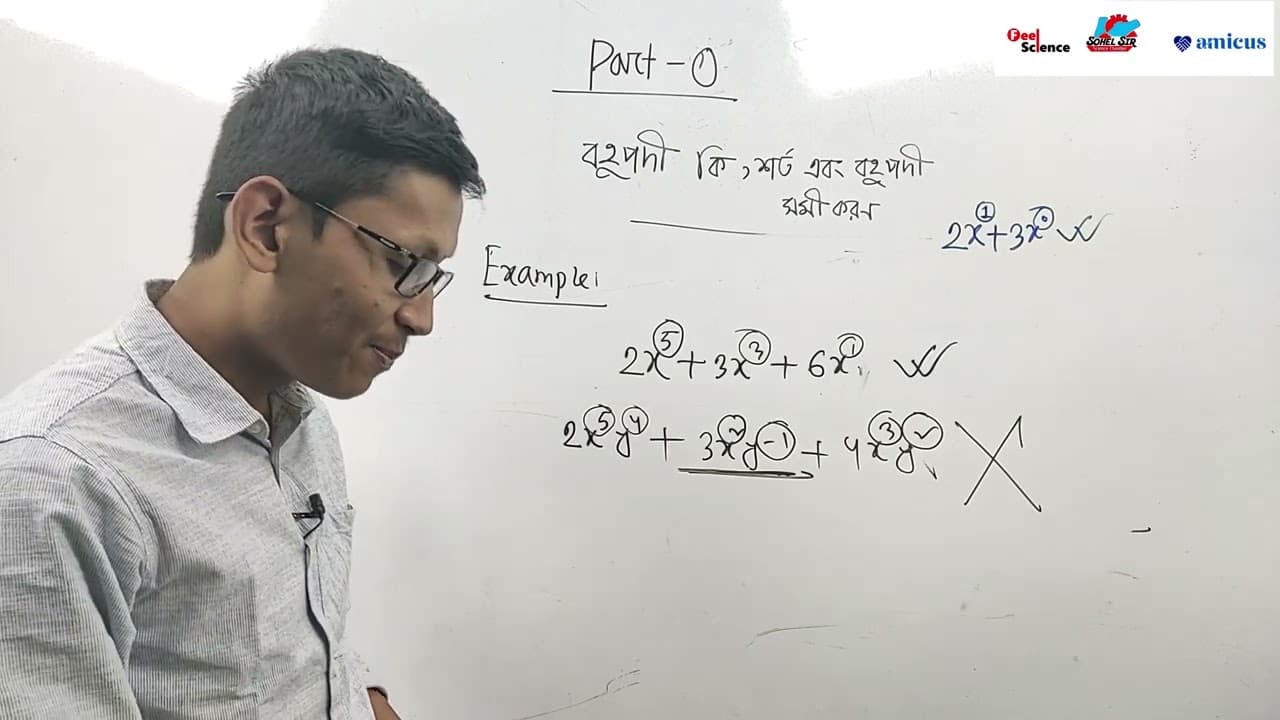 Feel Science
SOHEL SIR
Science Chamber
amicus
Part - 1
বহুপদী কি, শর্ত এবং বহুপদী
সমীকরণ
2x¹+3x⁰
Example:
2x⁵+3x³+6x¹
2x⁵y⁴+3x²y⁻¹+4x³y²